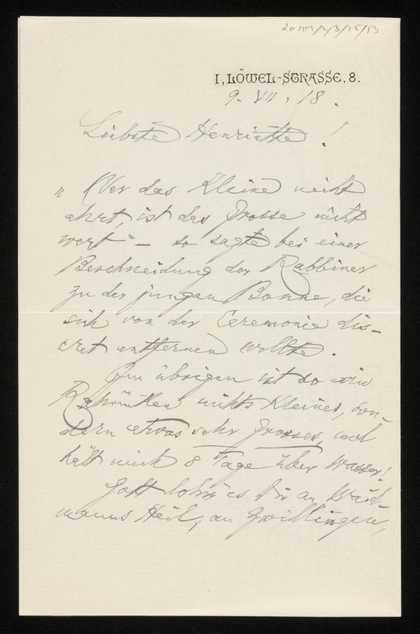 I, LÖWEL-STRASSE, 8.
9. VII. 18.
Liebste Henriette!
„Wer das Kleine nicht
ehrt, ist des Grosse nicht
wert" – so sagte bei einer
Beschneidung der Rabbiner
zu der jungen Bonne, die
sich von der Ceremonie dis-
cret entfernen wollte.
Im übrigen ist so ein
nichts Kleines, son-
dern etwas sehr Grosses, und
hält mich 8 Tage über Wasser!
Gott lohn' es Dir an
Heil, an Zwillingen,